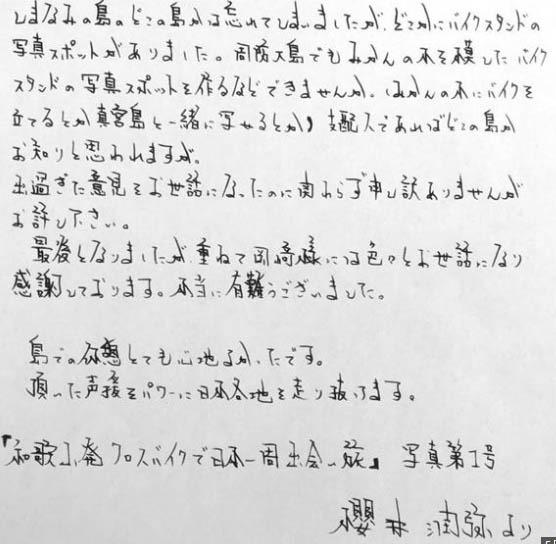 しまなみの島のどこの島かは忘れてしまいましたが、どこかにバイクスタンドの
写真スポットがありました。周防大島でもみかんの木を模したバイク
スタンドの写真スポットを作るなどできませんか。(みかんの木にバイクを
立てるとか真宮島と一緒に写せるとか)支配人であればどこの島か
お知りと思われますが。
出過ぎた意見をお世話になったのに関わらず申し訳ありませんが
お許し下さい。
最後となりましたが、重ねて岡崎様には色々とお世話になり
感謝しております。本当に有難うございました。
島での休憩とても心地よかったです。
頂いた声援をパワーに日本各地を走り抜けます。
『和歌山発クロスバイクで日本一周出会い旅』 写真第1号
櫻井 潤弥 より